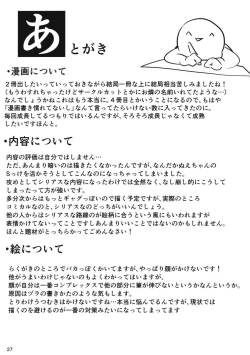 あとがき
・漫画について
2冊出したいっていっておきながら結局一冊な上に結局相当苦しみましたね！
(もうわすれちゃったけどサークルカットとかにお隣の名前いれてたような…)
なんでしょうかねこれはもう本当に。4冊目とかいうことになるので、もはや
「漫画書き慣れてないし」なんて言ってたらいけない数に入ってきたのに。
毎回成長してるつもりではいるんですが、そろそろ成長じゃなくて成熟
したいですほんと。
・内容について
内容の評価は自分ではしません…
ただ、あんまり暗いのは描きたくなかったんですが、なんだかぬえちゃんの
Sっけを活かそうとしてこんなのになっちゃってしまいました。
攻めとしてシリアスな内容になったわけでは全然なく、なし崩し的にこうして
しまったって方が強いです。
多分次からはもっとギャグっぽいので描く予定ですが、実際のところ
コミカルなのと、シリアスなのどっちがいいんですかね。
他の人からはシリアスな路線の方が絵柄に合うという風にもいわれますが
表情かけてないってことですしあんまりいいことではないのかもしれません。
ほんと題材がとっちらかってごめんなさい！
・絵について
らくがきのところでバカっぽくかいてますが、やっぱり顔がかけないです！
他がうまいわけじゃないのもよくわかってるんですけど、
顔が自分は一番コンプレックスで他の部分に筆が伸びないというかなんというか。
原因はプラの書きかたのような気もします。
とりわけうつむきはかけないですね…本当に悩んでるんですが、現状では
描くのを避けるのが一番の対策みたいになってしまってます
27